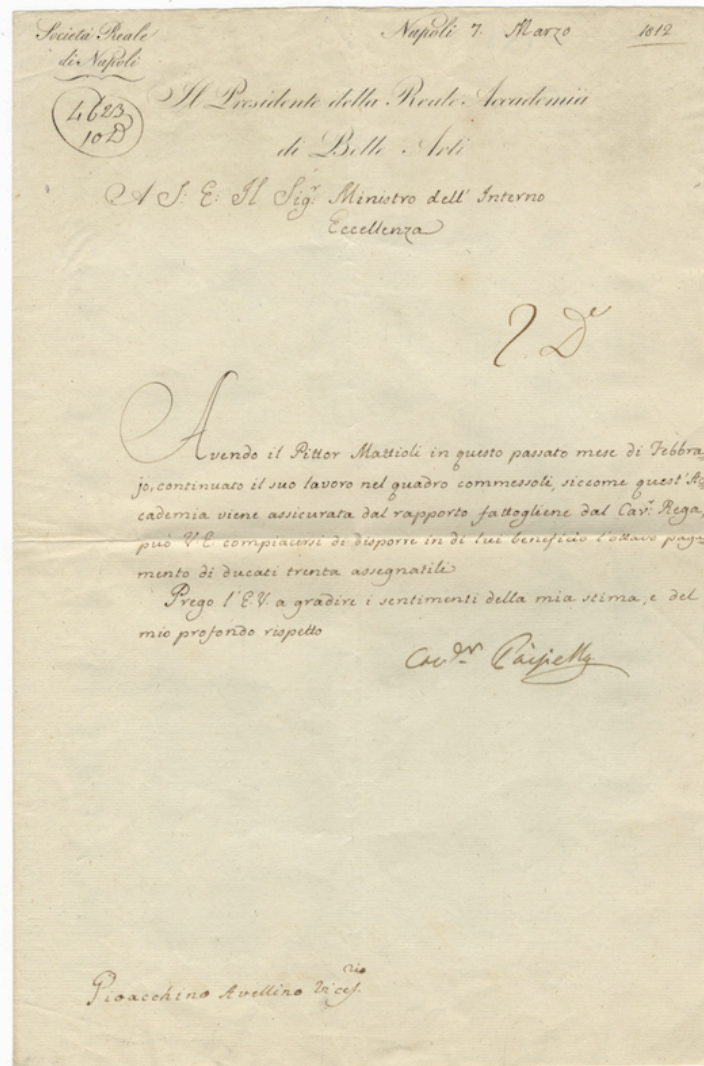 Società Reale
di Napoli
Napoli 7. Marzo 1812
4623
10 D
Il Presidente della Reale Accademia
di Belle Arti
A S: E: Il Sig.r Ministro dell' Interno
Eccellenza
2. De
Avendo il Pittor Mattioli in questo passato mese di Febbra-
jo, continuato il suo lavoro nel quadro commessoli, siccome quest' Ac-
cademia viene assicurata dal rapporto fattogliene dal Cav.r Rega,
può V. E. compiacersi di disporre in di lui beneficio l'ottavo paga-
mento di ducati trenta assegnatili
Prego l' E. V. a gradire i sentimenti della mia stima, e del
mio profondo rispetto
Gioacchino Avellino